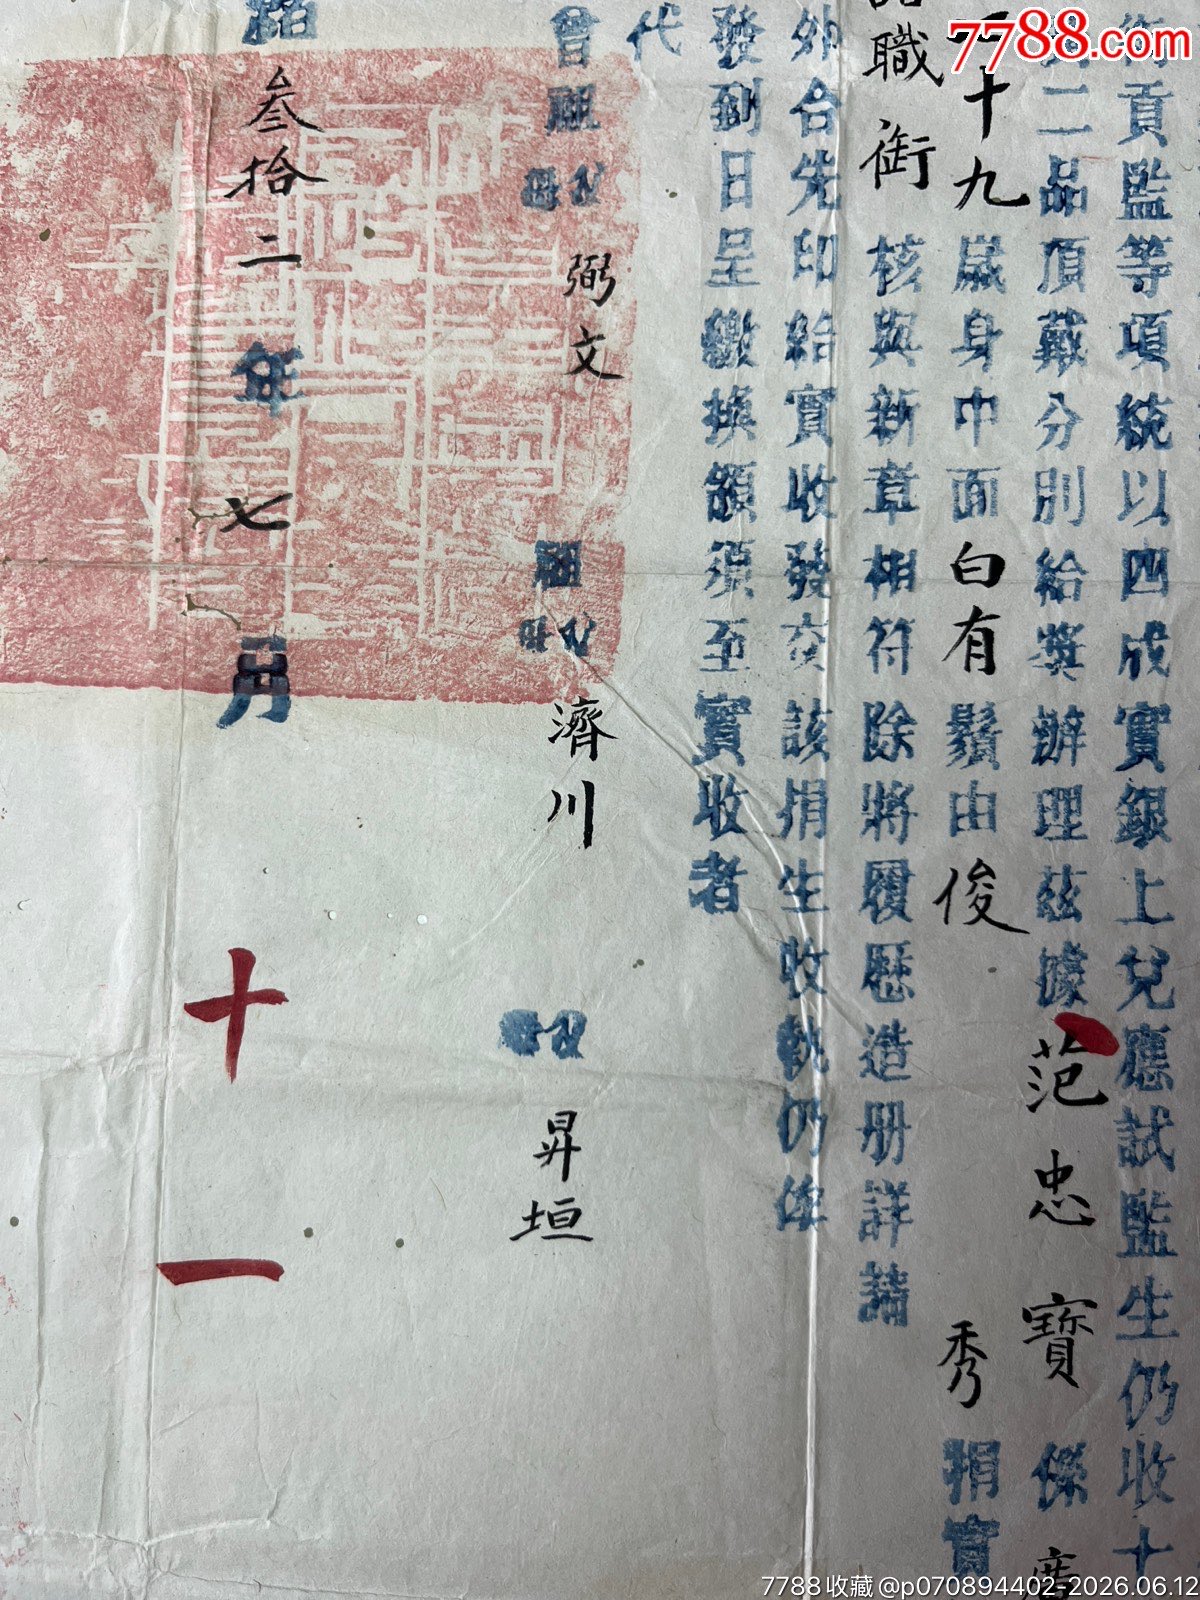 貢監等項統以四成實銀上兌應試監生仍收十
二品頂戴分別給獎辦理茲據范忠寶係廣
二十九歲身中面白有鬚由俊秀捐實
職銜核與新章相符除將履歷造册詳請
外合先印給實收發交該捐生收執仍俟
發到日呈繳換領須至實收者
代
曾祖父母弼文祖父母濟川父母昇垣
叁拾二年七月十一
7788.com
7788收藏@p070894402-2026.06.12